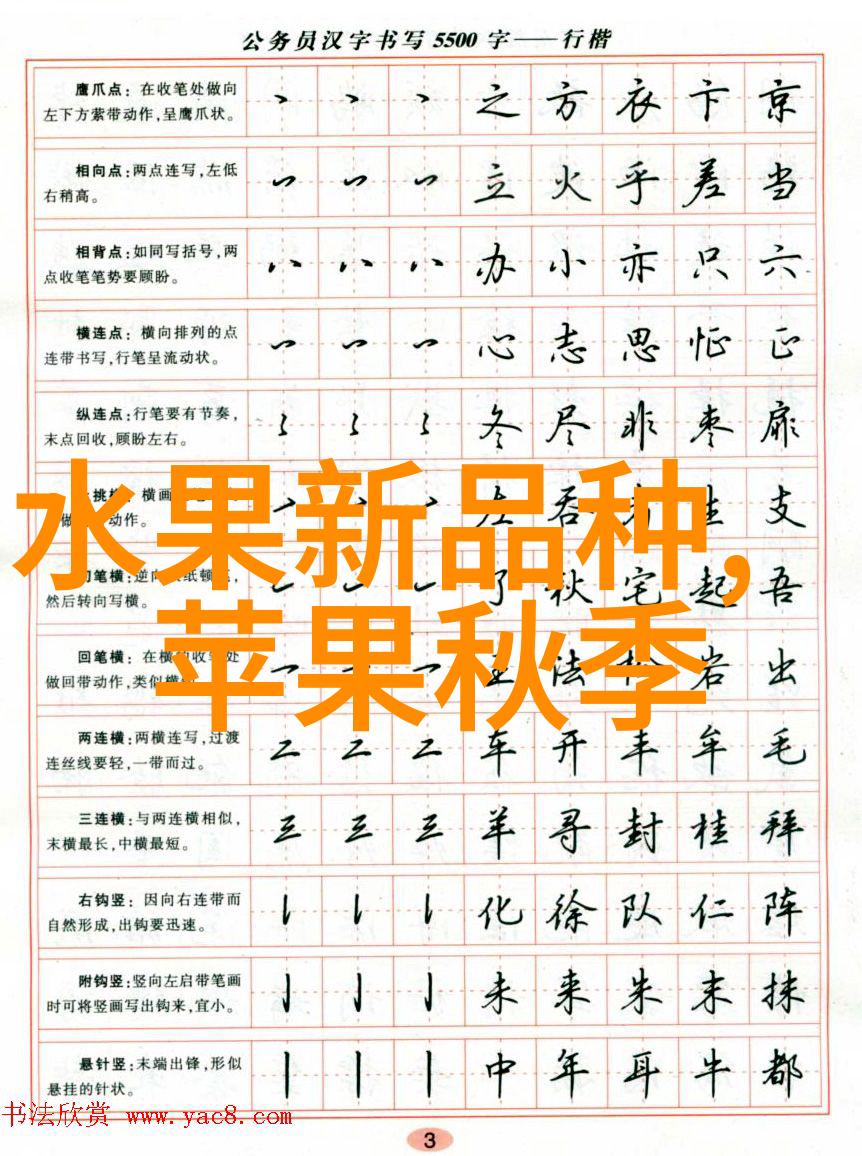 公务员汉字书写5500字——行楷
鹰爪点：在收笔处做向
左下方萦带动作，呈鹰爪状。
之 方 衣 卞 京
相向点：两点连写，左低
右稍高。
立 火 乎 差 当
相背点：如同写括号，两
点收笔笔势要顾盼。
办 小 亦 只 六
横连点：横向排列的点
连带书写，行笔呈流动状。
心 志 思 恒 正
纵连点：行笔要有节奏，
末点回收，顾盼左右。
冬 尽 非 枣 扉
水果新品种，
苹果秋季
支
然后转向写横。
了 秋 宅 起 吾
回笔横：在横的收笔处
做回带动作，类似横
法 岩 出
两连横：两横连写，过渡
连丝线要轻，一带而过。
二 二 二 车 开 丰 牟 毛
三连横：与两连横相似，
末横最长，中横最短。
三 三 三 羊 寻 封 桂 拜
右钩竖：因向右连带而
自然形成，出钩要迅速。
化 徐 队 仁 阵
附钩竖：竖向左启带笔画
时可将竖画写出钩来，宜小。
未 来 朱 末 抹
悬针竖：末端出锋，形似
悬挂的针状。
中 年 耳 牛 都
书法欣赏 www.yac8.com
3